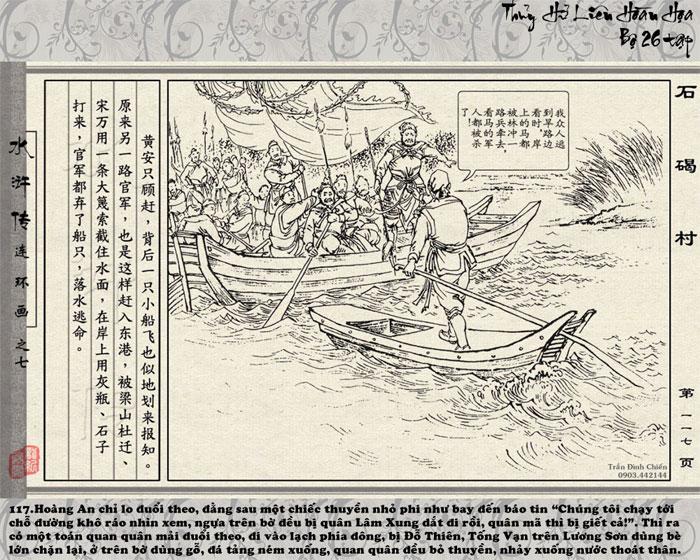 Thủy Hử Liên Hoàn Họa
Bộ 26 tập
石碣村
第一一七页
我众人逃
到旱路边
看时,岸
上的马都
被林冲一
路兵牵去
看马的军
人都被杀
了!
黄安只顾赶，背后一只小船飞也似地划来报知。
原来另一路官军，也是这样赶入东港，被梁山杜迁、
宋万用一条大篾索截住水面，在岸上用灰瓶、石子
打来，官军都弃了船只，落水逃命。
水浒传连环画之七
Trần Đình Chiến
0903.442144
117.Hoàng An chỉ lo đuổi theo, đằng sau một chiếc thuyền nhỏ phi như bay đến báo tin “Chúng tôi chạy tới
chỗ đường khô ráo nhìn xem, ngựa trên bờ đều bị quân Lâm Xung dắt đi rồi, quân mã thì bị giết cả!”. Thì ra
có một toán quan quân mải đuổi theo, đi vào lạch phía đông, bị Đỗ Thiên, Tống Vạn trên Lương Sơn dùng bè
lớn chặn lại, ở trên bờ dùng gỗ, đá tảng ném xuống, quan quân đều bỏ thuyền, nhảy xuống nước thoát thân.